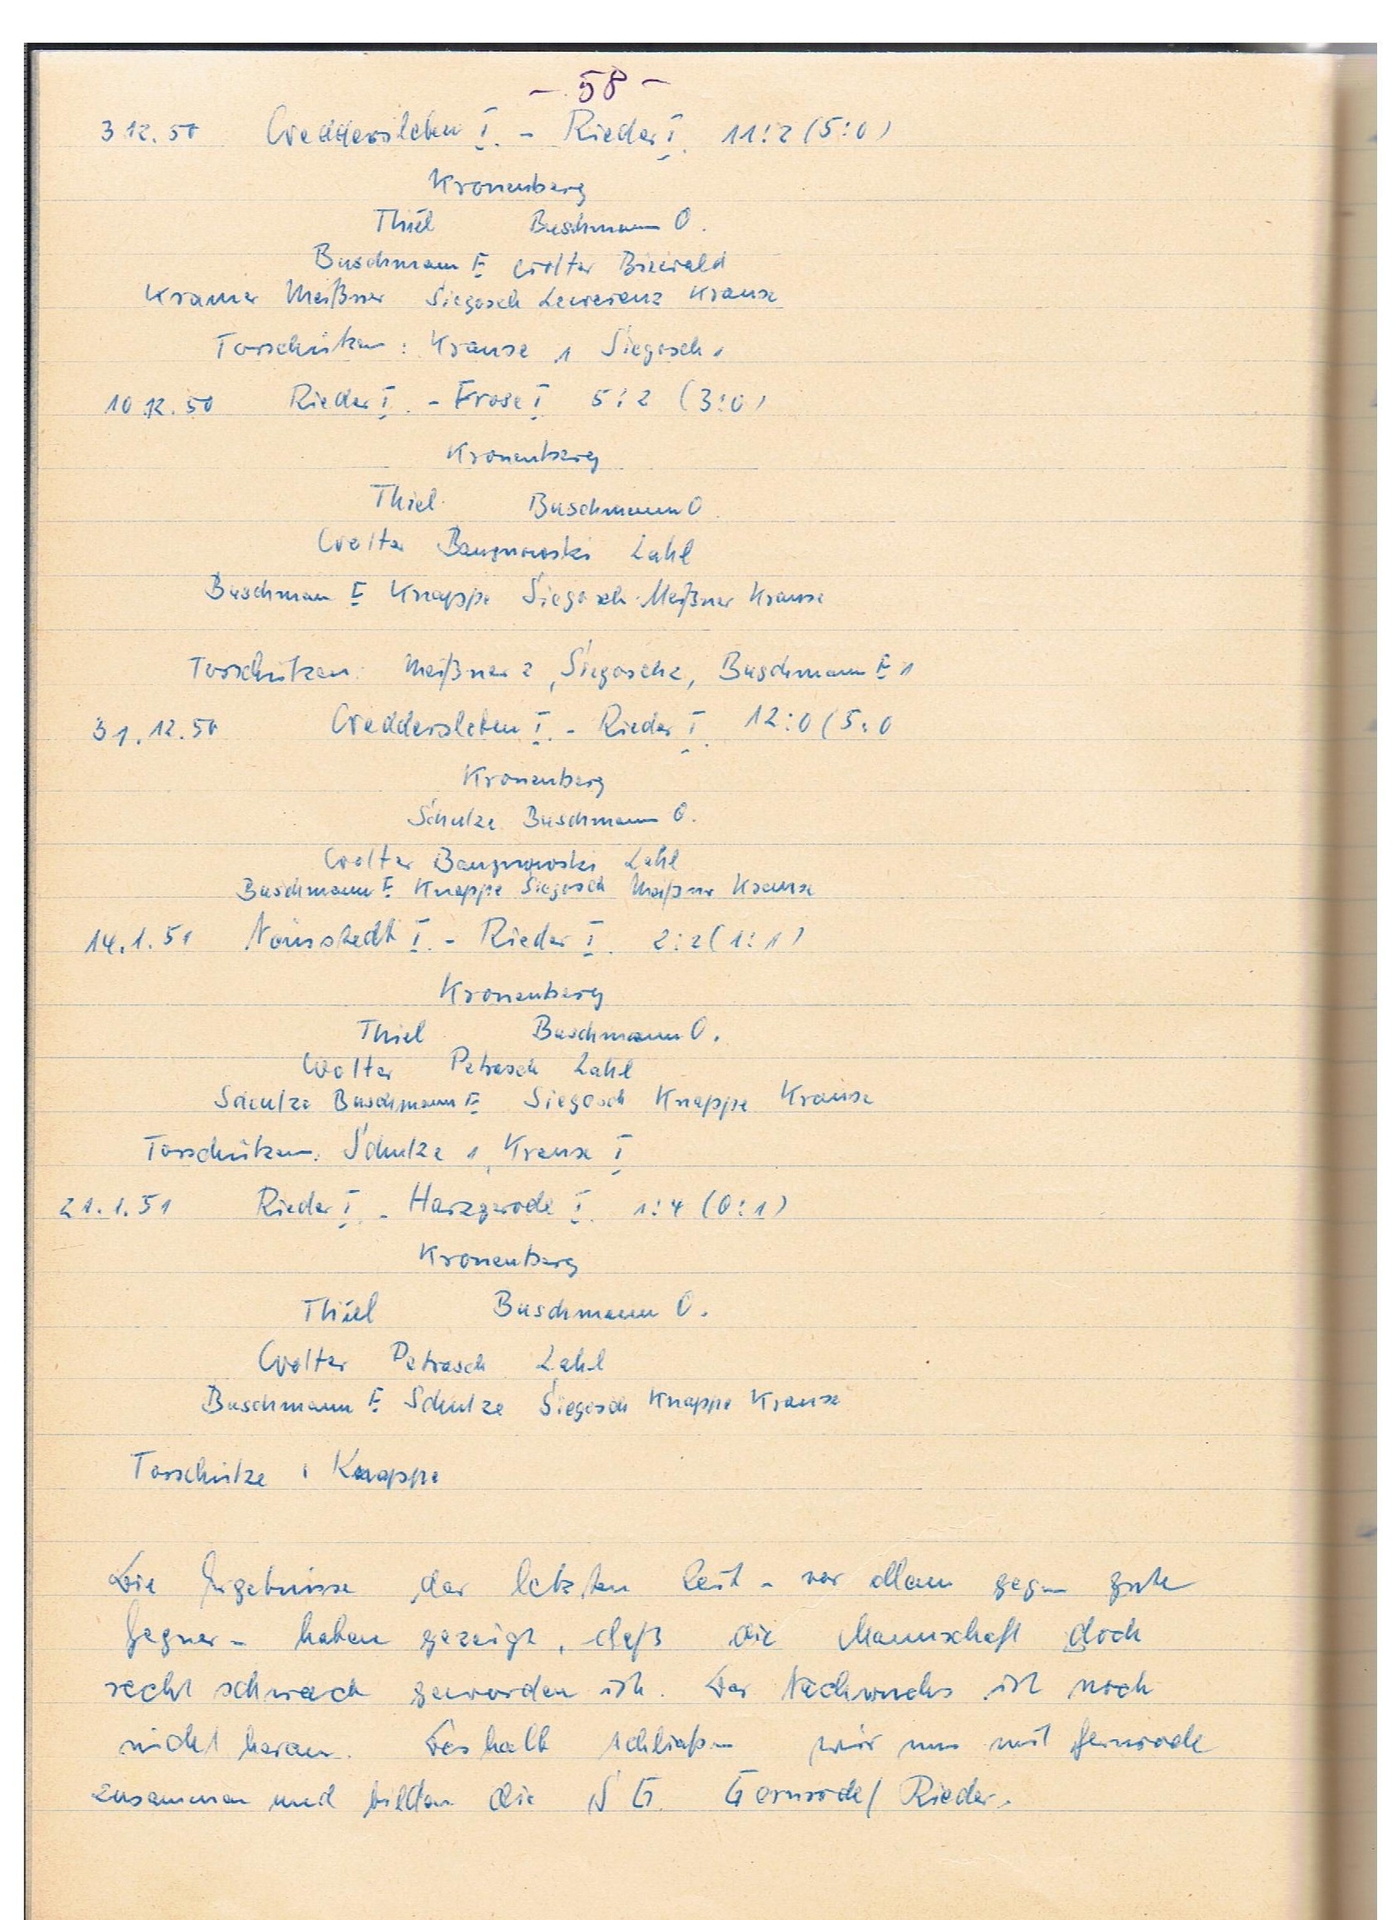 - 58 -
3 12. 50 Weddersleben I. - Rieder I. 11:2 (5:0)
Kronenberg
Thiel Buschmann O.
Buschmann E Wolter Biewald
Kramer Meißner Siegosch Lewerenz Krause
Torschützen: Krause 1 Siegosch 1
10.12.50 Rieder I. - Frose I 5:2 (3:0)
Kronenberg
Thiel Buschmann O.
Wolter Lahl
Buschmann E Knappe Siegosch Meißner Krause
Torschützen: Meißner 2, Siegosch 2, Buschmann E 1
31.12.50 Weddersleben I. - Rieder I. 12:0 (5:0
Kronenberg
Schulze Buschmann O.
Wolter Lahl
Buschmann E. Knappe Siegosch Meißner Krause
14.1.51 Neinstedt I. - Rieder I. 2:2 (1:1)
Kronenberg
Thiel Buschmann O.
Wolter Petrasch Lahl
Schulze Buschmann E Siegosch Knappe Krause
Torschützen: Schulze 1, Krause I
21.1.51 Rieder I. - Harzgerode I. 1:4 (0:1)
Kronenberg
Thiel Buschmann O.
Wolter Petrasch Lahl
Buschmann E. Schulze Siegosch Knappe Krause
Torschütze : Knappe
Die Ergebnisse der letzten Zeit - vor allem gegen gute
Gegner - haben gezeigt, daß die Mannschaft doch
recht schwach geworden ist. Der Nachwuchs ist noch
nicht heran. Deshalb schließen wir uns mit Gernrode
zusammen und bilden die S G. Gernrode/ Rieder.